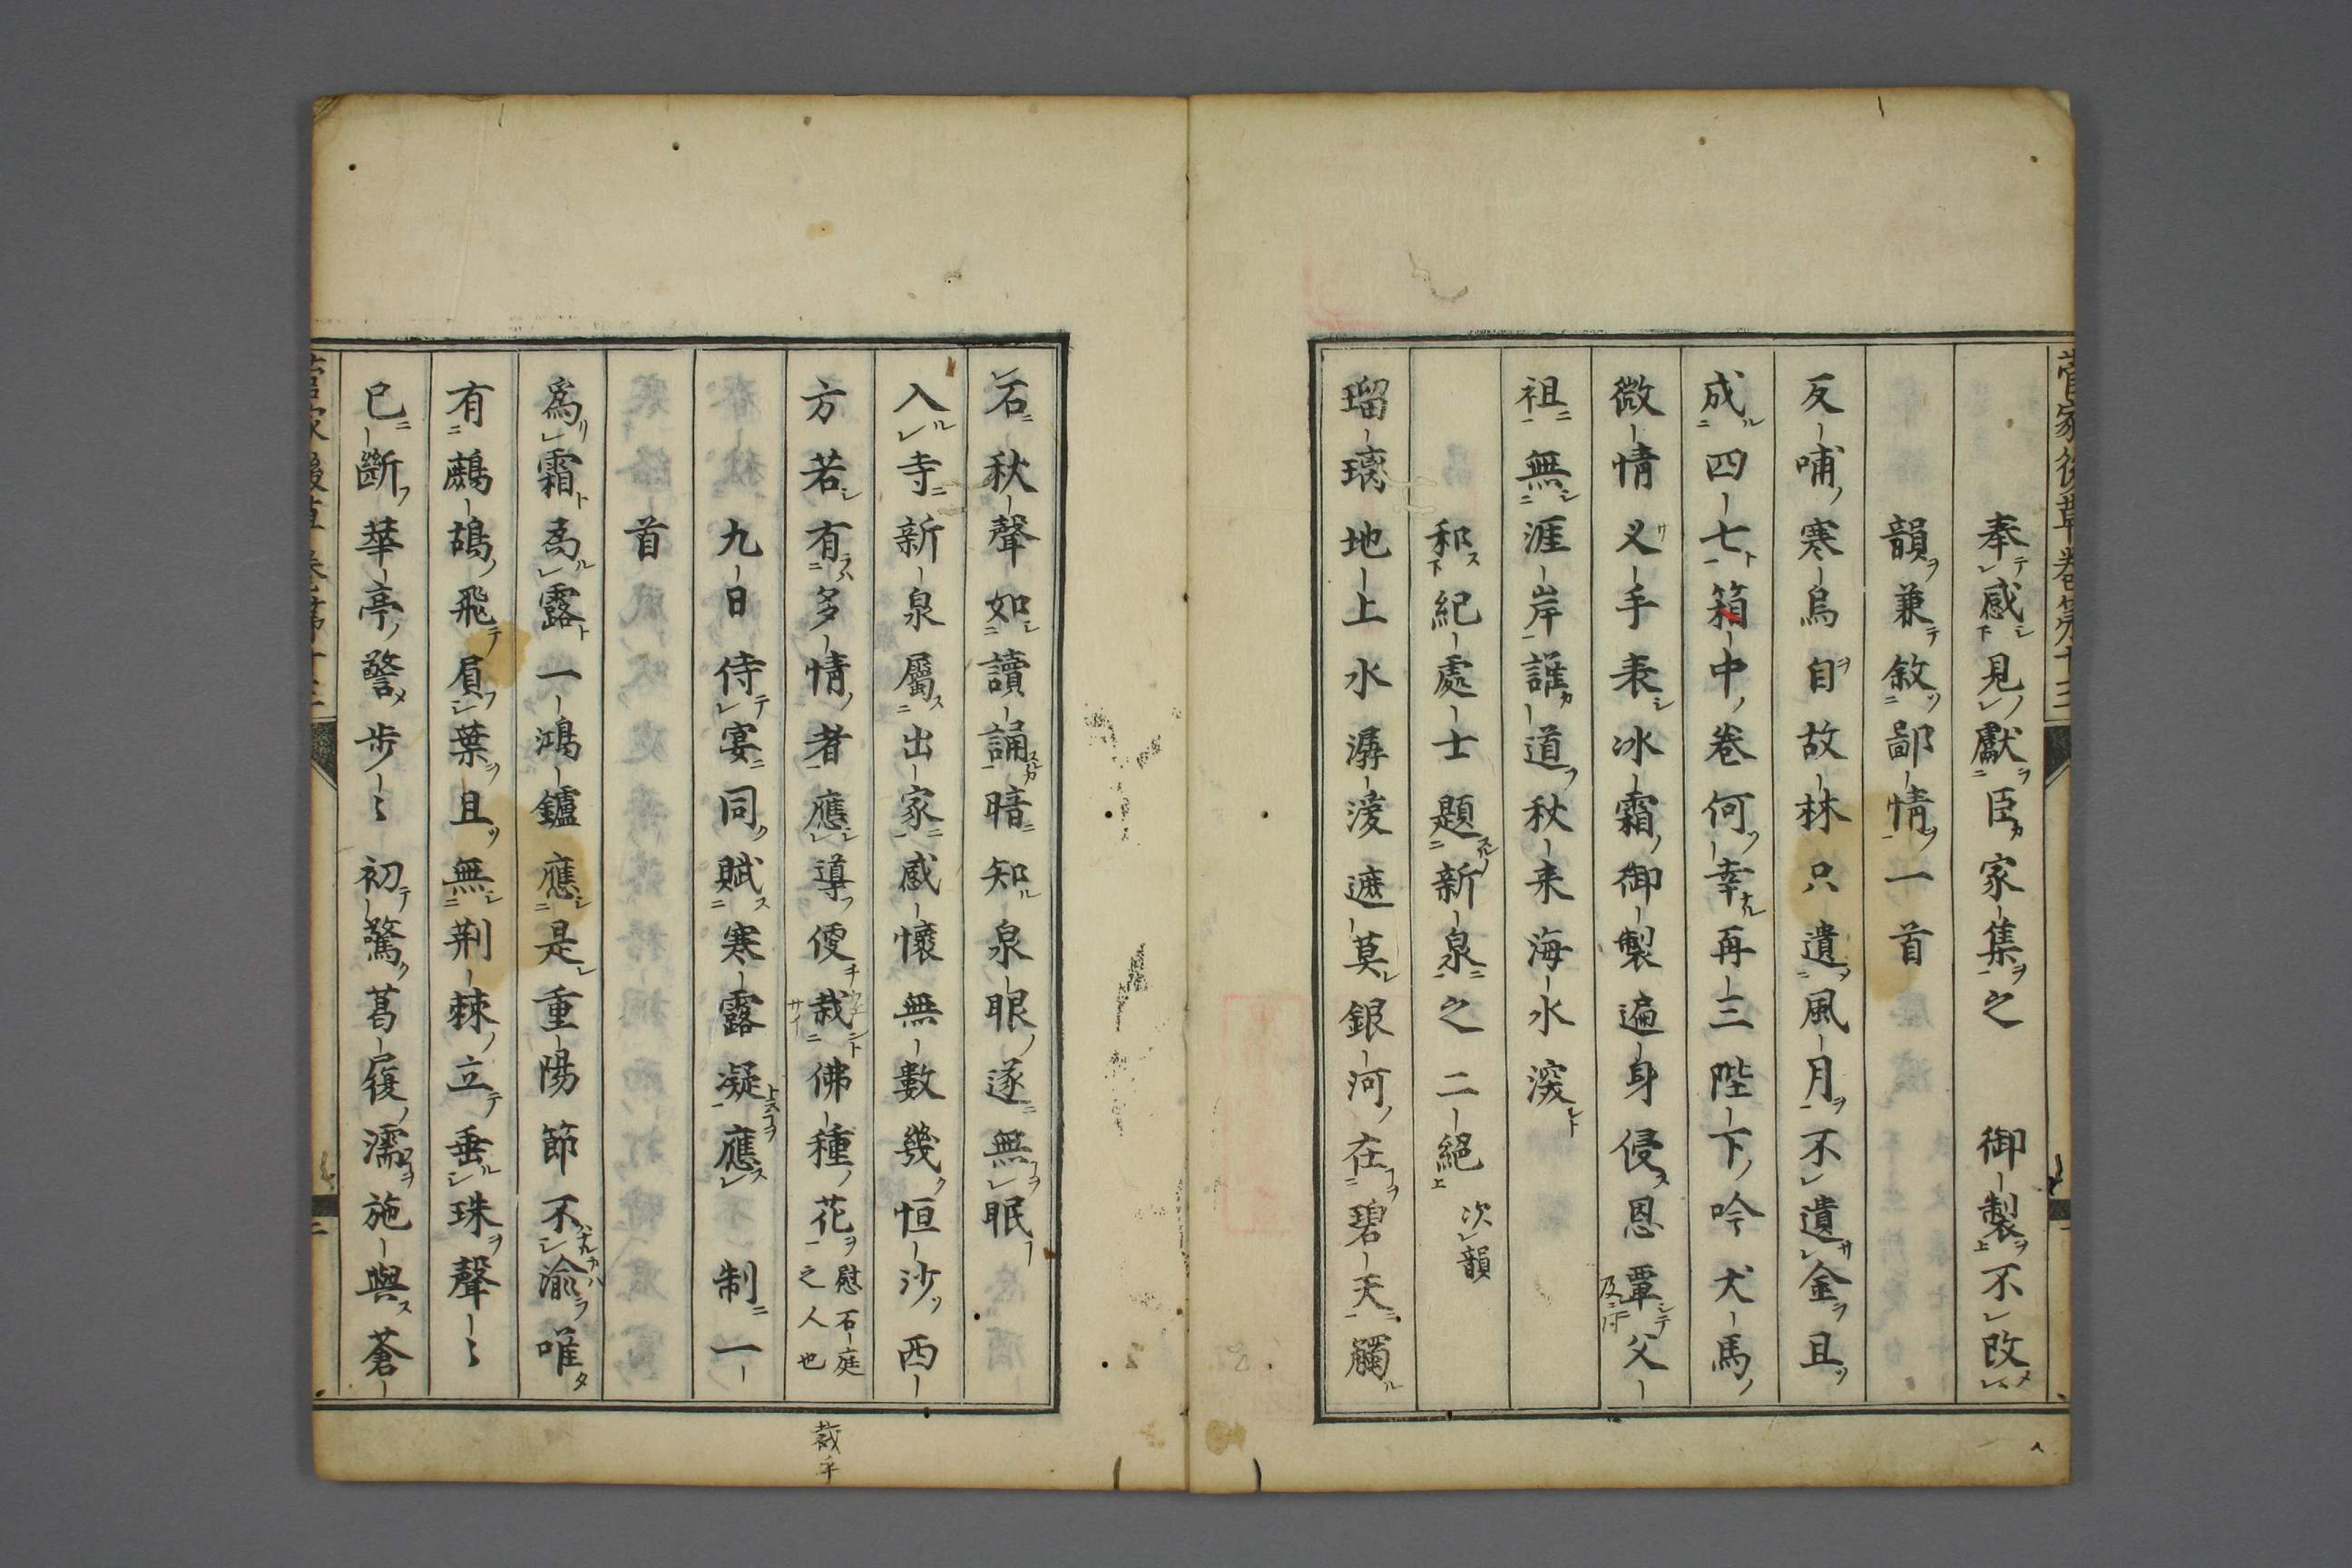 奉感見獻臣家集之 御製不改
韻兼敘鄙情一首
反哺寒烏自故林只遺風月不遺金且
成四七箱中卷何幸再三陛下吟犬馬
微情叉手表冰霜御製遍身侵恩覃父
祖無涯岸誰道秋来海水深
和紀處士題新泉之二絕次韻
瑠璃地上水潺湲遮莫銀河在碧天觸
石秋聲如讀誦暗知泉眼遂無眠
入寺新泉屬出家感懷無數幾恒沙西
方若有多情者應導便栽佛種花慰石庭之人也
九日侍宴同賦寒露凝應 制一
首
爲霜爲露一鴻鑪應是重陽節不渝唯
有鷓鴣飛屓葉且無荆棘立垂珠聲〻
已斷華亭警步〻初驚葛履濡施與蒼